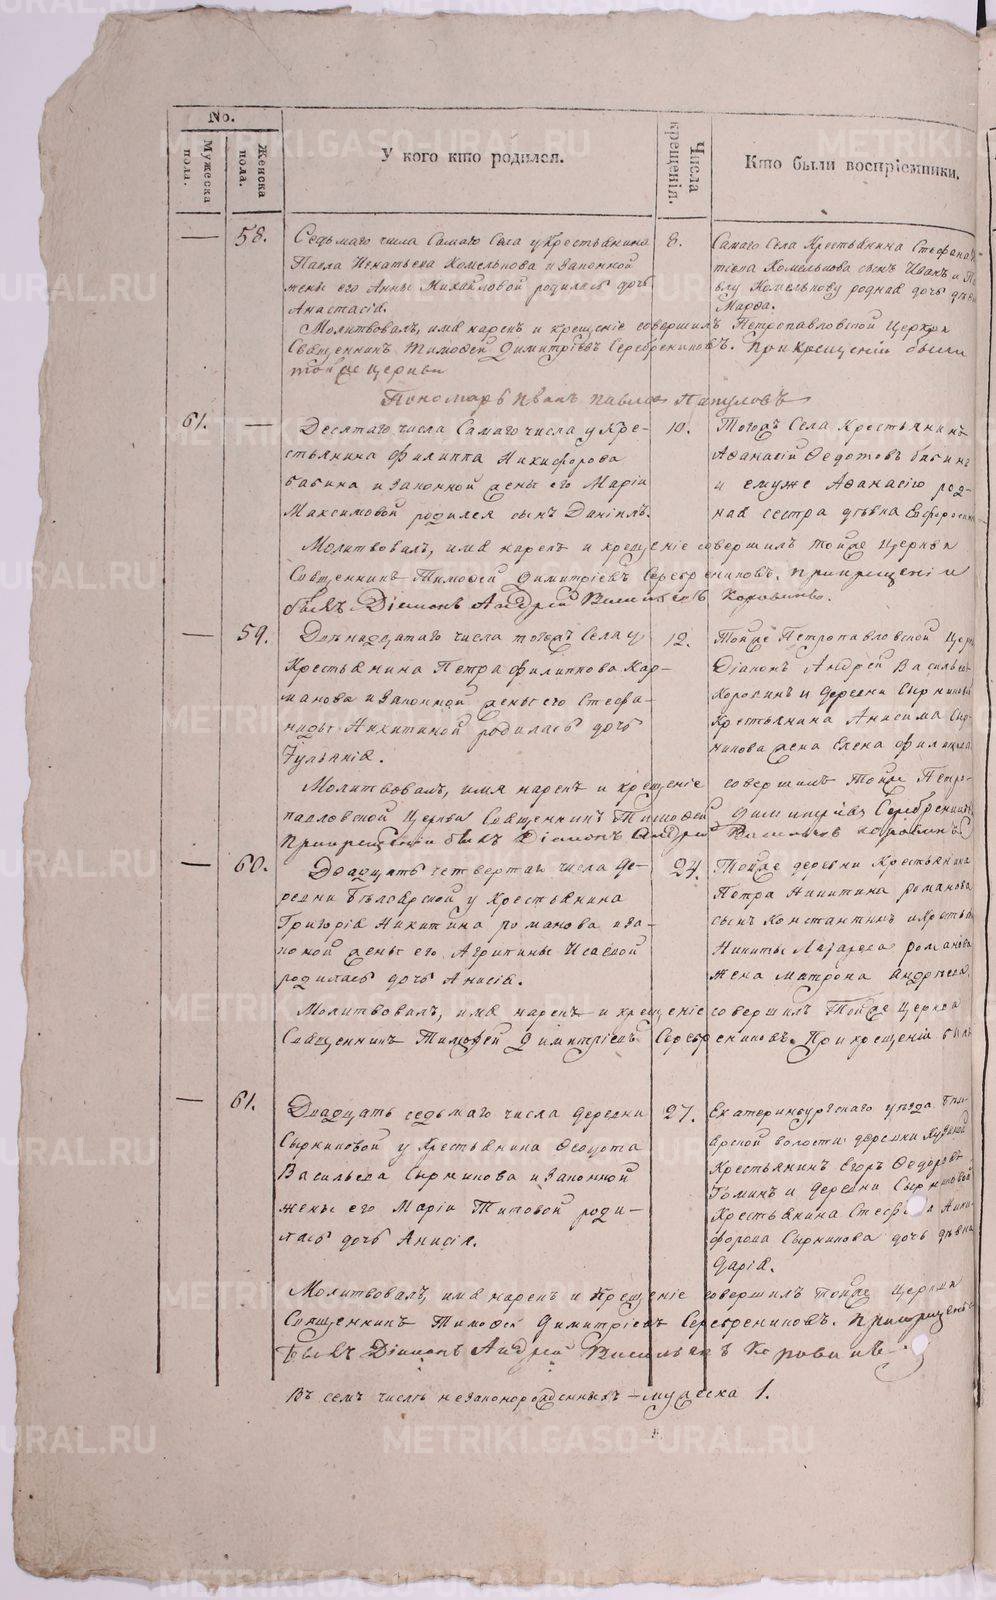 No.
Мужеска пола.
Женска пола.
У кого кто родился.
Числа крещенія.
Кто были воспріемники.
— 58.
Седьмаго числа Самаго Села у крестьянина
Павла Игнатьева Комелькова и законной
жены его Анны Михайловой родилась дочь
Анастасія.
8.
Самаго Села Крестьянина Стефана
Комелькова сынъ Иванъ и
Комелькову родная дочь дѣвка
Марѳа.
Молитвовалъ, имя нарекъ и крещеніе совершилъ Петропавловской Церкви
Священникъ Тимоѳей Димитріевъ Серебрениковъ. При крещеніи были
тойже церкви
Пономарь Иванъ Павловъ
61. —
Десятаго числа Самаго числа у Кре-
стьянина Филиппа Никифорова
бабина и законной жены его Маріи
Максимовой родился сынъ Даніилъ.
10.
Тогожъ Села Крестьянинъ
Аѳанасій Ѳедотовъ бабинъ
и емуже Аѳанасію род-
ная сестра дѣвка
Молитвовалъ, имя нарекъ и крещеніе совершилъ тойже Церкви
Священникъ Тимоѳей Димитріевъ Серебрениковъ. При крещеніи
былъ Діаконъ Андрей Васильевъ Коровинъ.
— 59.
Двѣнадцатаго числа тогожъ Села у
Крестьянина Петра Филиппова Кар-
манова и законной жены его Стефа-
ниды Никитиной родилась дочь
Іульянія.
12.
Тойже Петропавловской Церк
Діаконъ Андрей Василье
Коровинъ и деревни Сырниковой
Крестьянина Анисима Сыр-
никова жена Елена
Молитвовалъ, имя нарекъ и крещеніе совершилъ Тойже Петро-
павловской Церкви Священникъ Тимоѳей Димитріевъ Серебрениковъ
При крещеніи былъ Діаконъ Андрей Васильевъ Коровинъ
— 60.
Двадцать четвертаго числа де-
ревни у крестьянина
Григорія Никитина романова и за-
конной жены его Агрипины Исаевой
родилась дочь Анисія.
24.
Тойже деревни Крестьянина
Петра Никитина романова
сынъ Константинъ и крестья
Никиты Лазарева романова
жена матрона андреева
Молитвовалъ, имя нарекъ и крещеніе совершилъ Тойже Церкви
Священникъ Тимоѳей Димитріевъ Серебрениковъ. При крещеніи былъ
— 61.
Двадцать седьмаго числа деревни
Сырниковой у Крестьянина Ѳедота
Васильева Сырникова и законной
жены его Маріи Титовой роди-
лась дочь Анисія.
27.
Екатеринбургскаго уѣзда
волости деревни
Крестьянинъ Егоръ Ѳедоровъ
Ѳоминъ и деревни Сырниковой
Крестьянина Стефана Ники-
форова Сырникова дочь дѣвка
Дарія.
Молитвовалъ, имя нарекъ и Крещеніе совершилъ тойже Церкви
Священникъ Тимоѳей Димитріевъ Серебрениковъ. При крещеніи
былъ Діаконъ Андрей Васильевъ Коровинъ
Въ семъ числѣ незаконорожденныхъ — мужеска 1.
METRIKI.GASO-URAL.RU